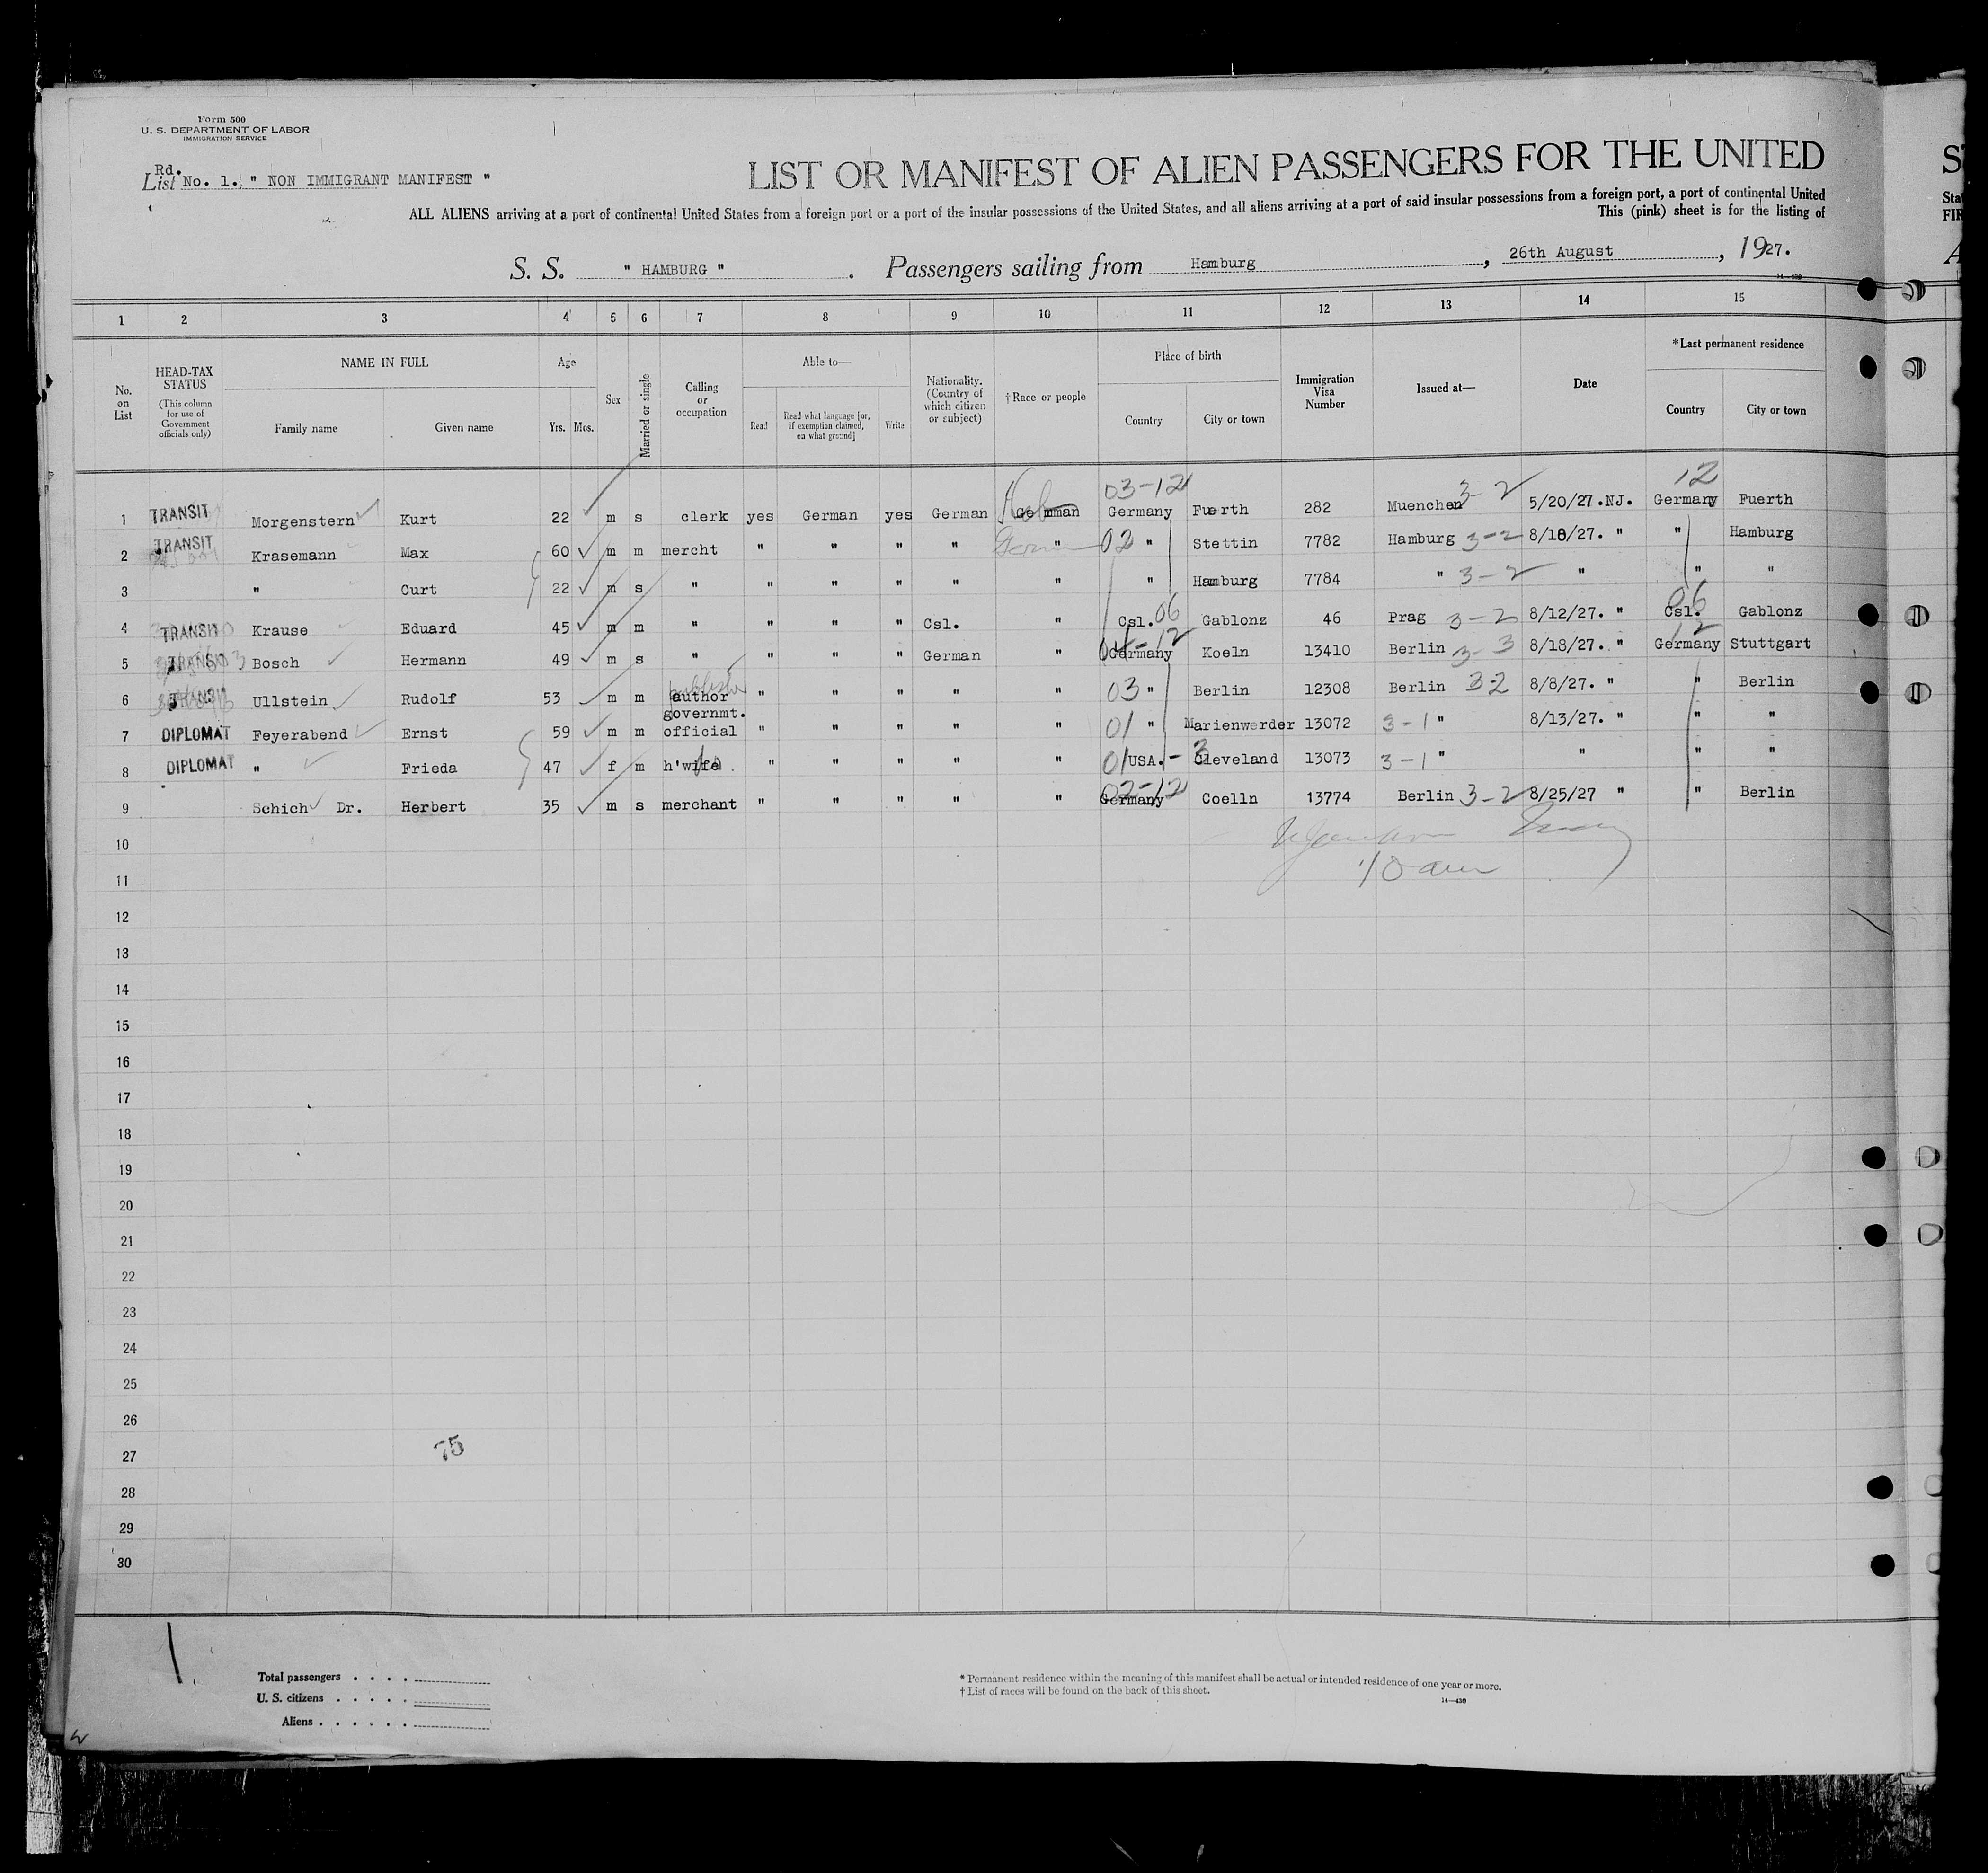 Form 500
U. S. DEPARTMENT OF LABOR
IMMIGRATION SERVICE
Rd.
List No. 1. " NON IMMIGRANT MANIFEST "
LIST OR MANIFEST OF ALIEN PASSENGERS FOR THE UNITED
ALL ALIENS arriving at a port of continental United States from a foreign port or a port of the insular possessions of the United States, and all aliens arriving at a port of said insular possessions from a foreign port, a port of continental United
This (pink) sheet is for the listing of
S. S. " HAMBURG " . Passengers sailing from Hamburg , 26th August , 1927.
14—430
1 2 3 4 5 6 7 8 9 10 11 12 13 14 15
No. on List
HEAD-TAX STATUS
(This column for use of Government officials only)
NAME IN FULL
Family name Given name
Age
Yrs. Mos.
Sex
Married or single
Calling or occupation
Able to—
Read Read what language [or, if exemption claimed, on what ground] Write
Nationality. (Country of which citizen or subject)
† Race or people
Place of birth
Country City or town
Immigration Visa Number
Issued at—
Date
*Last permanent residence
Country City or town
03-12 12
1 TRANSIT Morgenstern Kurt 22 m s clerk yes German yes German German Germany Fuerth 282 Muenchen 3-2 5/20/27.NJ. Germany Fuerth
2 TRANSIT Krasemann Max 60 m m mercht " " " " " 02 " Stettin 7782 Hamburg 3-2 8/10/27. " " Hamburg
3 " Curt 22 m s " " " " " " " Hamburg 7784 " 3-2 " " "
4 TRANSIT Krause Eduard 45 m m " " " " Csl. " Csl. 06 Gablonz 46 Prag 3-2 8/12/27. " Csl. 06 Gablonz
04-12 12
5 TRANSIT Bosch Hermann 49 m s " " " " German " Germany Koeln 13410 Berlin 3-3 8/18/27. " Germany Stuttgart
publisher
6 TRANSIT Ullstein Rudolf 53 m m author " " " " " 03 " Berlin 12308 Berlin 3-2 8/8/27. " " Berlin
7 DIPLOMAT Feyerabend Ernst 59 m m governmt. official " " " " " 01 " Marienwerder 13072 3-1 " 8/13/27. " " "
8 DIPLOMAT " Frieda 47 f m h'wife " " " " " 01 USA.-3 Cleveland 13073 3-1 " " " "
02-12
9 Schich Dr. Herbert 35 m s merchant " " " " " Germany Coelln 13774 Berlin 3-2 8/25/27 " " Berlin
10
10 am
11
12
13
14
15
16
17
18
19
20
21
22
23
24
25
26
27
75
28
29
30
Total passengers
U. S. citizens
Aliens
* Permanent residence within the meaning of this manifest shall be actual or intended residence of one year or more.
† List of races will be found on the back of this sheet.
14—430